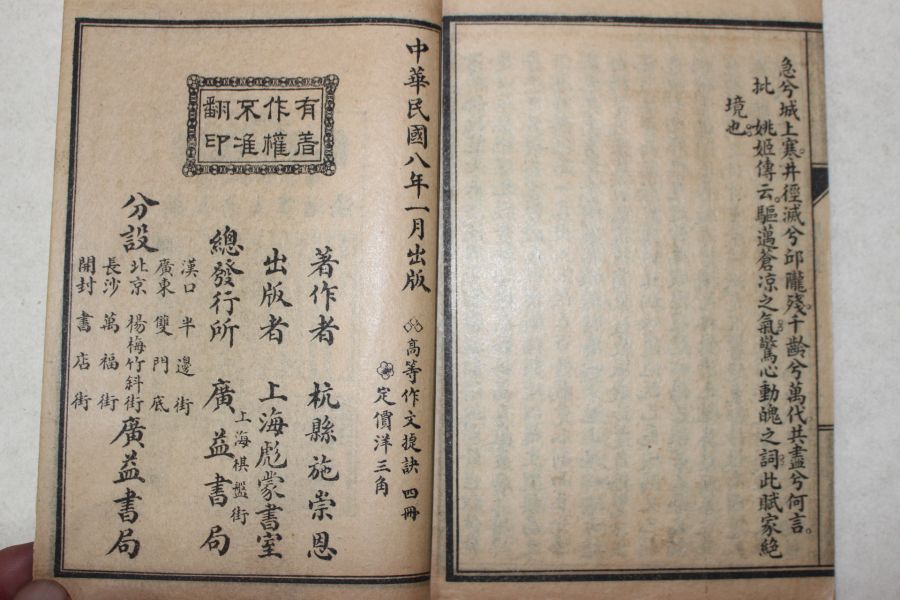 急兮城上寒井徑滅兮邱隴殘千齡兮萬代共盡兮何言。
批　姚姬傳云驅邁蒼凉之氣驚心動魄之詞此賦家絶
境也。
中華民國八年一月出版
高等作文捷訣　四冊
定價洋三角
有著
作權
不准
翻印
著作者　杭縣施崇恩
出版者　上海彪蒙書室
上海棋盤街
總發行所　廣益書局
漢口半邊街
廣東雙門底
北京楊梅竹斜街
長沙萬福街
開封書店街
分設　廣益書局